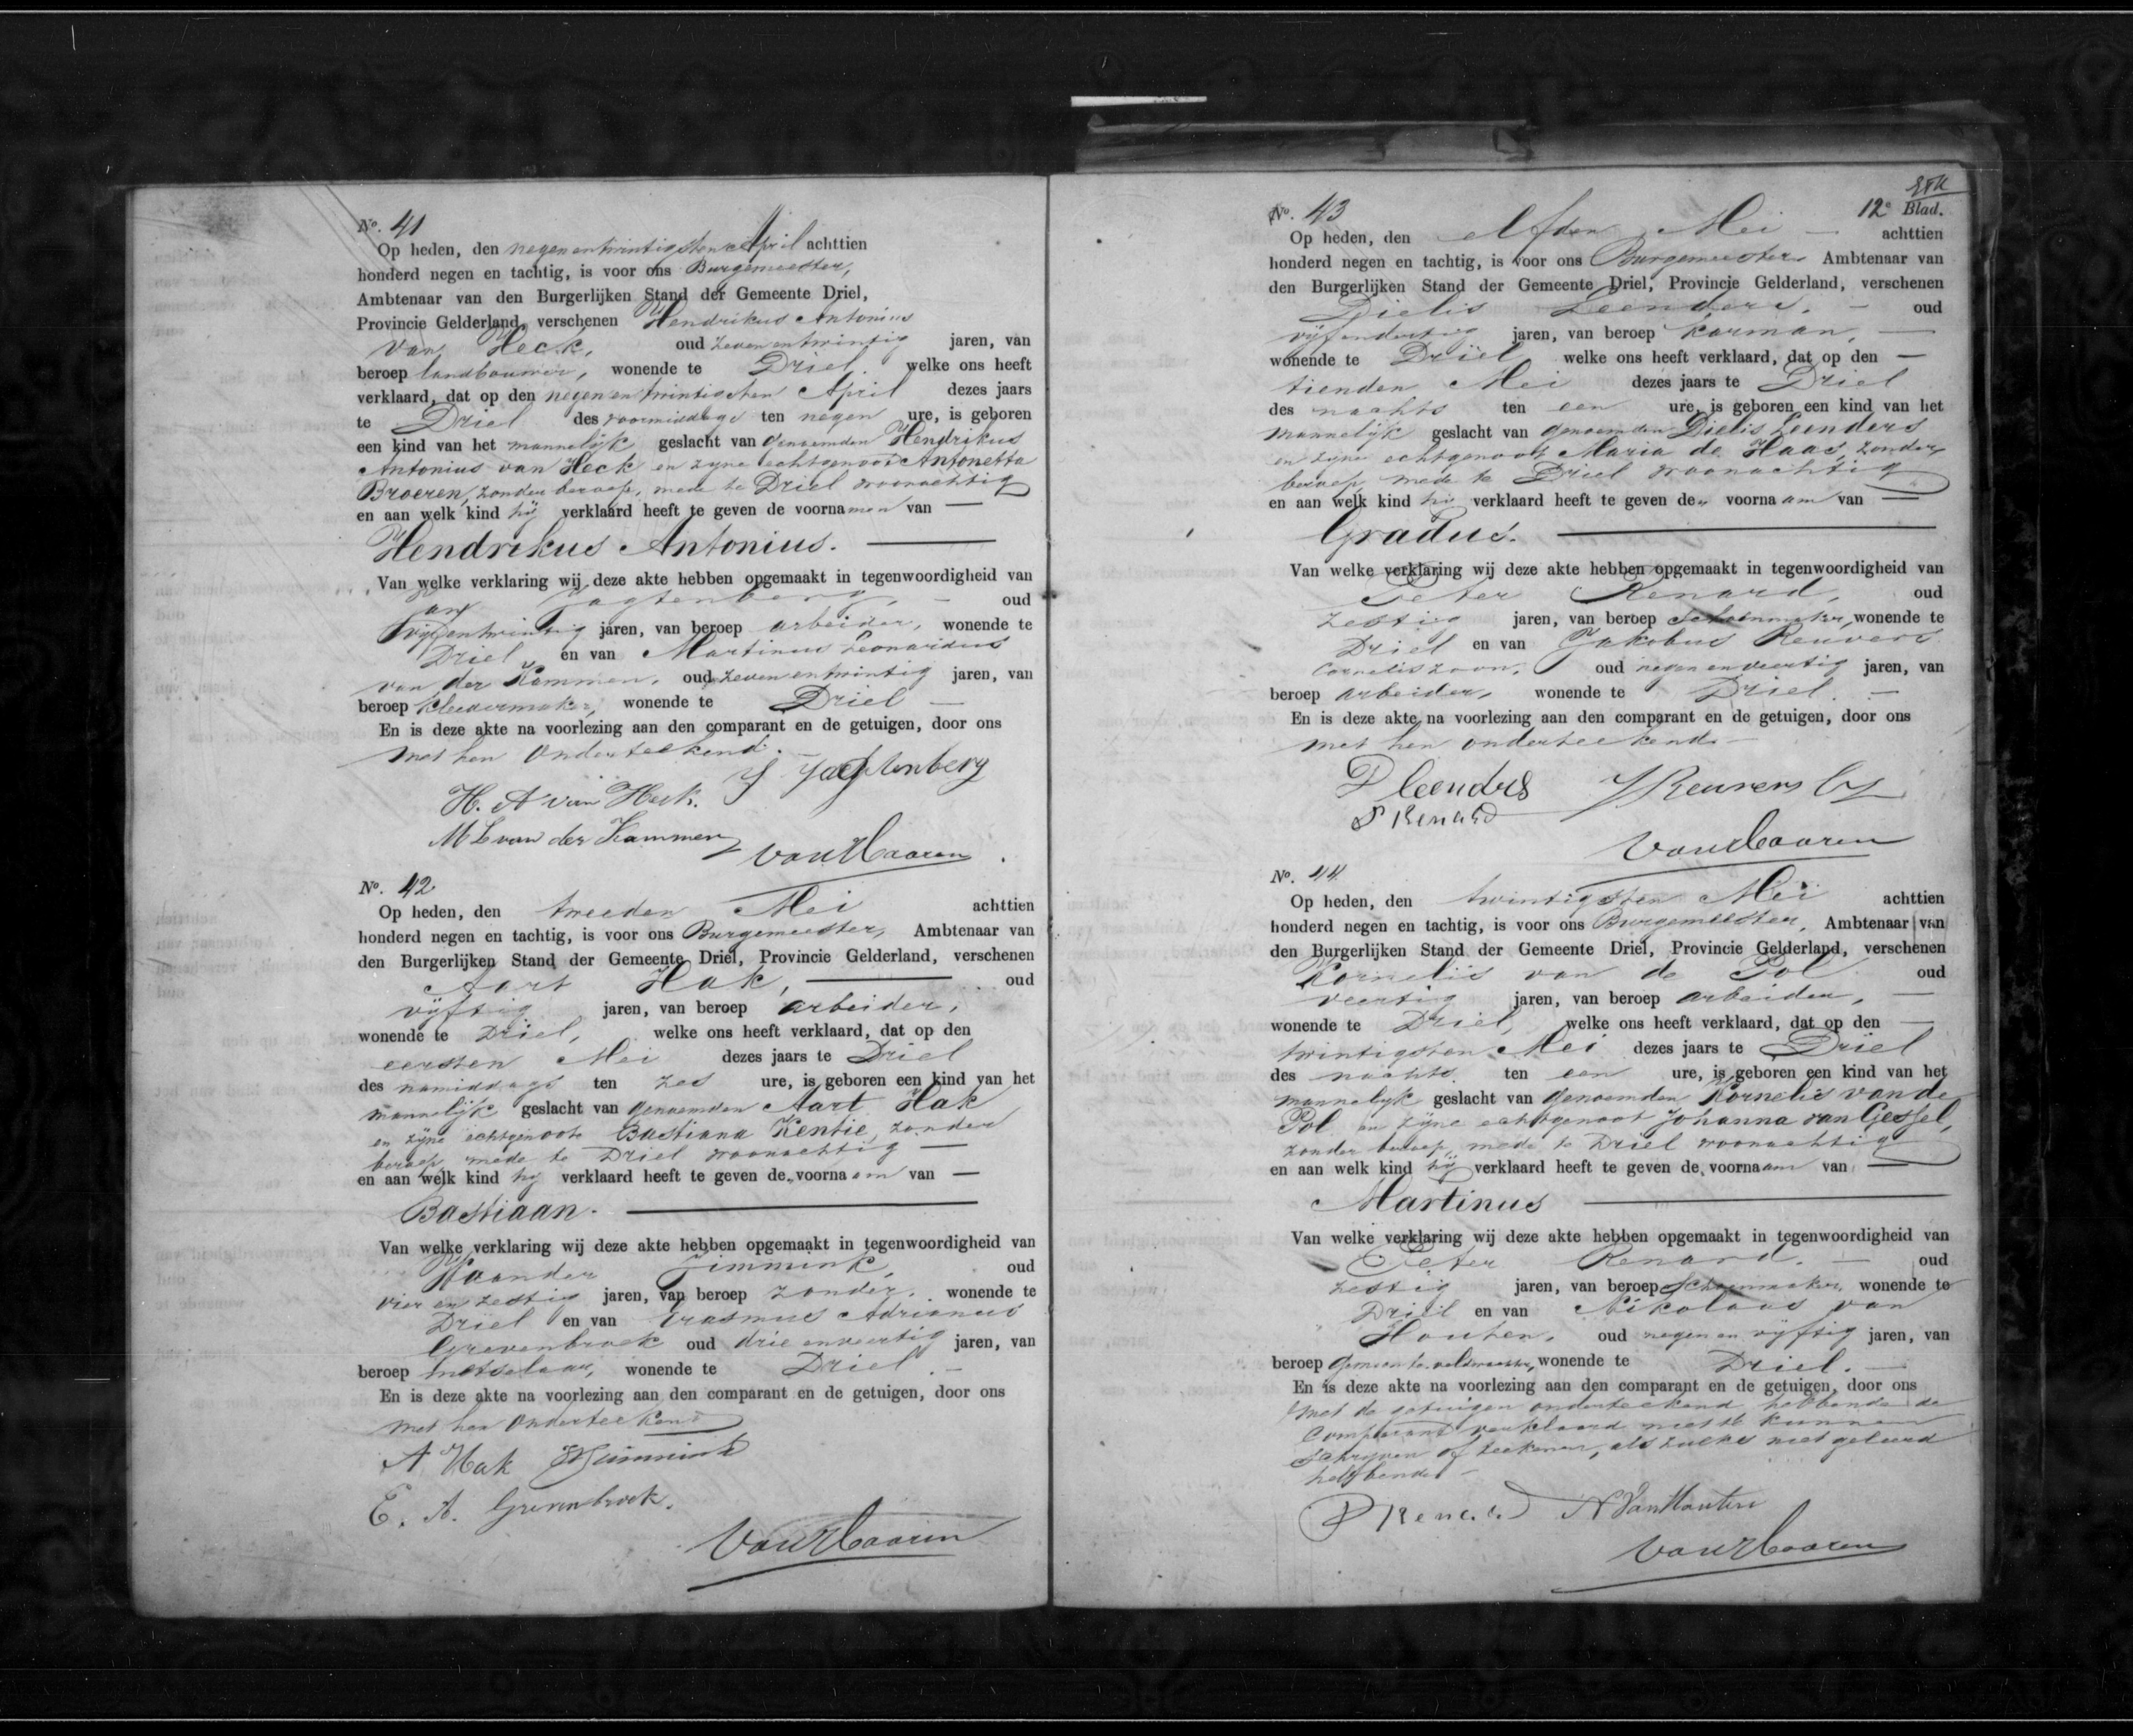 No. 41
Op heden, den negenentwintigsten April achttien
honderd negen en tachtig, is voor ons Burgemeester,
Ambtenaar van den Burgerlijken Stand der Gemeente Driel,
Provincie Gelderland, verschenen Hendrikus Antonius
van Heck, oud zevenentwintig jaren, van
beroep landbouwer, wonende te Driel. welke ons heeft
verklaard, dat op den negenentwintigsten April dezes jaars
te Driel des voormiddags ten negen ure, is geboren
een kind van het mannelijk geslacht van genoemden Hendrikus
Antonius van Heck en zijne echtgenoot Antonetta
Broeren, zonder beroep, mede te Driel woonachtig
en aan welk kind hij verklaard heeft te geven de voornamen van —
Hendrikus Antonius.
Van welke verklaring wij deze akte hebben opgemaakt in tegenwoordigheid van
Jan Jagtenberg, oud
vijfentwintig jaren, van beroep arbeider, wonende te
Driel en van Martinus Leonardus
van der Kammen, oud zevenentwintig jaren, van
beroep kleedermaker, wonende te Driel —
En is deze akte na voorlezing aan den comparant en de getuigen, door ons
met hen onderteekend. —
J Jagtenberg
H. A van Heck.
M L van der Kammen
van Haaren
No. 42
Op heden, den tweeden Mei achttien
honderd negen en tachtig, is voor ons Burgemeester, Ambtenaar van
den Burgerlijken Stand der Gemeente Driel, Provincie Gelderland, verschenen
Aart Hak, oud
vijftig jaren, van beroep arbeider,
wonende te Driel, welke ons heeft verklaard, dat op den
eersten Mei dezes jaars te Driel
des namiddags ten zes ure, is geboren een kind van het
mannelijk geslacht van genoemden Aart Hak
en zijne echtgenoote Bastiana Kentie, zonder
beroep, mede te Driel woonachtig —
en aan welk kind hij verklaard heeft te geven de voornaam van —
Bastiaan.
Van welke verklaring wij deze akte hebben opgemaakt in tegenwoordigheid van
Waander Jimmink, oud
vier en zestig jaren, van beroep zonder, wonende te
Driel en van Erasmus Adrianus
Grevenbroek oud drie en veertig jaren, van
beroep metselaar, wonende te Driel. —
En is deze akte na voorlezing aan den comparant en de getuigen, door ons
met hen onderteekend
A Hak
E. A. Grevenbroek.
van Haaren
12e Blad.
No. 43
Op heden, den elfden Mei — achttien
honderd negen en tachtig, is voor ons Burgemeester Ambtenaar van
den Burgerlijken Stand der Gemeente Driel, Provincie Gelderland, verschenen
Dielis Leenders, — oud
vijfendertig jaren, van beroep karman, —
wonende te Driel welke ons heeft verklaard, dat op den —
tienden Mei dezes jaars te Driel
des nachts ten een ure, is geboren een kind van het
mannelijk geslacht van genoemden Dielis Leenders
en zijne echtgenoot Maria de Haas, zonder
beroep, mede te Driel woonachtig
en aan welk kind hij verklaard heeft te geven de voornaam van —
Gradus.
Van welke verklaring wij deze akte hebben opgemaakt in tegenwoordigheid van
Peter Renard, oud
zestig jaren, van beroep schoenmaker, wonende te
Driel en van Jakobus Reuvers
Corneliszoon, oud negen en veertig jaren, van
beroep arbeider, wonende te Driel. —
En is deze akte na voorlezing aan den comparant en de getuigen, door ons
met hen onderteekend —
D Leenders J Reuvers Cz
P Renard
van Haaren
No. 44
Op heden, den twintigsten Mei achttien
honderd negen en tachtig, is voor ons Burgemeester, Ambtenaar van
den Burgerlijken Stand der Gemeente Driel, Provincie Gelderland, verschenen
Kornelis van de Pol oud
veertig jaren, van beroep arbeider, —
wonende te Driel, welke ons heeft verklaard, dat op den —
twintigsten Mei dezes jaars te Driel
des nachts ten een ure, is geboren een kind van het
mannelijk geslacht van genoemden Kornelis van de
Pol en zijne echtgenoot Johanna van Gessel,
zonder beroep, mede te Driel woonachtig
en aan welk kind hij verklaard heeft te geven de voornaam van —
Martinus
Van welke verklaring wij deze akte hebben opgemaakt in tegenwoordigheid van
Peter Renard. — oud
zestig jaren, van beroep Schoenmaker, wonende te
Driel en van Nikolaas van
Houten, oud negen en vijftig jaren, van
beroep gemeente veldwachter, wonende te Driel. —
En is deze akte na voorlezing aan den comparant en de getuigen, door ons
met de getuigen onderteekend hebbende de
Comparant verklaard niet te kunnen
schrijven of teekenen, als zulks niet geleerd
hebbende —
P Renard N VanHouten
van Haaren